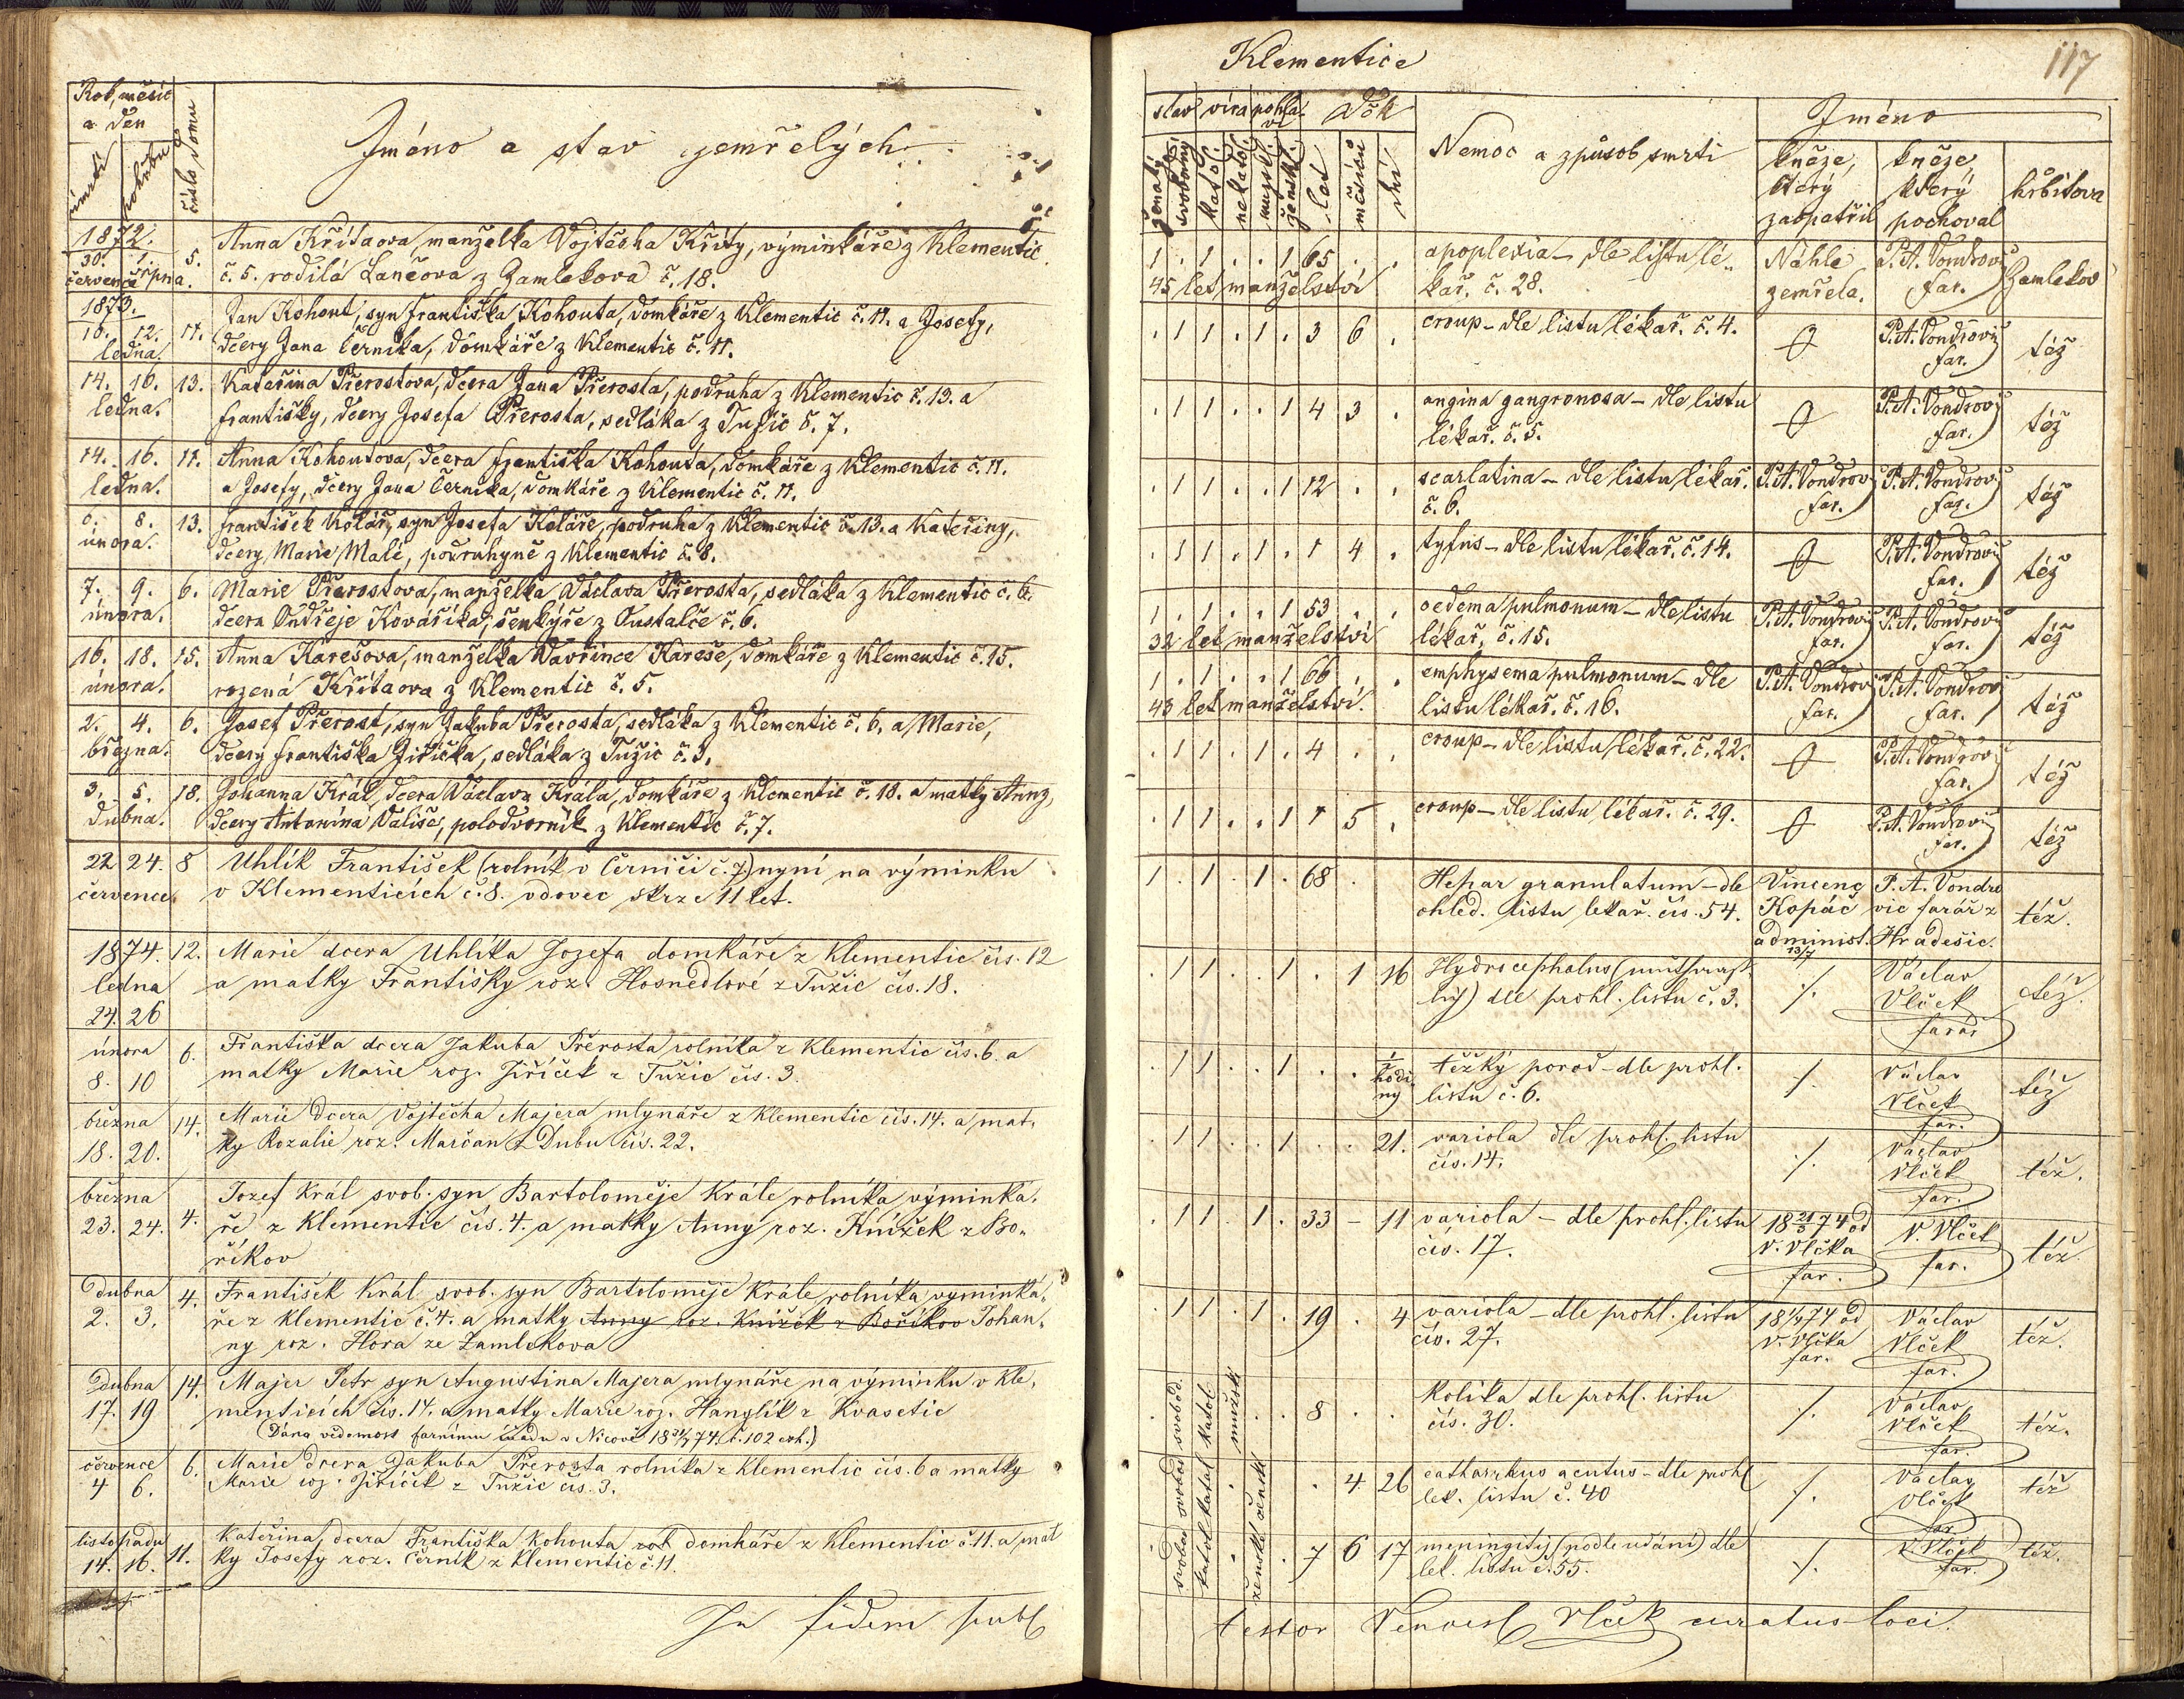 Klementice
117
Rok, měsíc
a den
úmrtí
pohřbu
číslo domu
Jméno a stav zemřelých
stav víra pohla-
ví
Věk
Nemoc a způsob smrti
Jméno
ženatý
svobodný
katol.
nekatol.
mužské
ženské
let
měsíců
dní
kněze,
který
zaopatřil
kněze
který
pochoval
hřbitova
1872.
30. 1. 5.
července srpna.
Anna Křítaova, manželka Vojtěcha Kříty, výminkáře z Klementic
č. 5. rodilá Lančova z Zamlekova č. 18.
1 . 1 . . 1 65 . .
45 let manželství
apoplexia - dle listu lé-
kař. č. 28.
Náhle
zemřela.
P. A. Vondrovic
far.
Zamlekov
1873.
10. 12. 11.
ledna.
Jan Kohout, syn Františka Kohouta, domkáře z Klementic č. 11. a Josefy,
dcery Jana Černíka, domkáře z Klementic č. 11.
. 1 1 . 1 . 3 6 .
croup - dle listu lékař. č. 4.
P. A. Vondrovic
far.
též
14. 16. 13.
ledna.
Kateřina Přerostova, dcera Jana Přerosta, podruha z Klementic č. 13. a
Františky, dcery Josefa Přerosta, sedláka z Tužic č. 7.
. 1 1 . . 1 4 3 .
angina gangronosa - dle listu
lékař. č. 5.
P. A. Vondrovic
far.
též
14. 16. 11.
ledna.
Anna Kohoutova, dcera Františka Kohouta, domkáře z Klementic č. 11.
a Josefy, dcery Jana Černíka, domkáře z Klementic č. 11.
. 1 1 . . 1 12 . .
scarlatina - dle listu lékař.
č. 6.
P. A. Vondrovic
far.
P. A. Vondrovic
far.
též
6. 8. 13.
února.
František Kolář, syn Josefa Koláře, podruha z Klementic č. 13. a Kateřiny,
dcery Marie Malé, podruhyně z Klementic č. 8.
. 1 1 . 1 . 1 4 .
tyfus - dle listu lékař. č. 14.
P. A. Vondrovic
far.
též
7. 9. 6.
února.
Marie Přerostova, manželka Václava Přerosta, sedláka z Klementic č. 6.
dcera Ondřeje Kováříka, šenkýře z Oustalče č. 6.
1 . 1 . . 1 53 . .
32 let manželství
oedema pulmonum - dle listu
lékař. č. 15.
P. A. Vondrovic
far.
P. A. Vondrovic
far.
též
16. 18. 15.
února.
Anna Karešova, manželka Vavřince Kareše, domkáře z Klementic č. 15.
rozená Křítaova z Klementic č. 5.
1 . 1 . . 1 66 . .
43 let manželství.
emphysema pulmonum - dle
listu lékař. č. 16.
P. A. Vondrovic
far.
P. A. Vondrovic
far.
též
2. 4. 6.
března.
Josef Přerost, syn Jakuba Přerosta, sedláka z Klementic č. 6. a Marie,
dcery Františka Jiříčka, sedláka z Tužic č. 3.
. 1 1 . 1 . 4 . .
croup - dle listu lékař. č. 22.
P. A. Vondrovic
far.
též
3. 5. 18.
dubna.
Johanna Král, dcera Václava Krále, domkáře z Klementic č. 18. a matky Anny,
dcery Antonína Vališe, polodvorník z Klementic č. 7.
. 1 1 . . 1 1 5 .
croup - dle listu lékař. č. 29.
P. A. Vondrovic
far.
též
22 24. 8
července.
Uhlík František (rolník v Černíči č. 7) nyní na výminku
v Klementicích č. 8. vdovec skrze 11 let.
1 . 1 . 1 . 68 .
Hepar granulatum - dle
ohled. listu lekař. čís. 54.
Vincenc
Kopáč
administ.
13/7
P. A. Vondro
vic farář z
Hradešic.
též.
1874. 12.
ledna
24. 26
Marie dcera Uhlíka Jozefa domkáře z Klementic čís. 12
a matky Františky roz. Hosnedlové z Tužic čís. 18.
. 1 1 . . 1 . 1 16
Hydrocephalus
dle prohl. listu č. 3.
./.
Václav
Vlček
farář
též.
února 6.
8. 10
Františka dcera Jakuba Přerosta rolníka z Klementic čís. 6. a
matky Marie roz. Jiříček z Tužic čís. 3.
. 1 1 . . 1 . . 1 hodi
ny
těžký porod - dle prohl.
listu č. 6.
./.
Václav
Vlček
far.
též
března 14.
18. 20.
Marie dcera Vojtěcha Majera mlynáře z Klementic čís. 14. a mat-
ky Rozalie roz. Marčan z Dubu čís. 22.
. 1 1 . . 1 . . 21.
variola dle prohl. listu
čís. 14.
./.
Václav
Vlček
far.
též.
března
23. 24. 4.
Jozef Král svob. syn Bartoloměje Krále rolníka výminká-
ře z Klementic čís. 4. a matky Anny roz. Knížek z Bo-
říkov
. 1 1 . 1 . 33 - 11
variola - dle prohl. listu
čís. 17.
18 21/3 74 od
V. Vlčka
far.
V. Vlček
far.
též
Dubna 4.
2. 3.
František Král svob. syn Bartoloměje Krále rolníka výminká-
ře z Klementic č. 4. a matky Anny roz. Knížek z Boříkov Johan-
ny roz. Hora ze Zamlekova
. 1 1 . 1 . 19 . 4
variola - dle prohl. listu
čís. 27.
18 1/4 74 od
V. Vlčka
far.
Václav
Vlček
far.
též.
Dubna 14.
17. 19
Majer Petr syn Augustina Majera mlynáře na výminku v Kle-
menticích čís. 14. a matky Marie roz. Hanzlík z Kvasetic
(Dána vědomost farnímu úřadu v Nicově 18 21/4 74. č. 102 exh.)
svobod.
katol.
mužské
8 . .
Kolika dle prohl. listu
čís. 30.
./.
Václav
Vlček
far.
též.
července 6.
4 6.
Marie dcera Jakuba Přerosta rolníka z Klementic čís. 6 a matky
Marie roz. Jiříček z Tužic čís. 3.
svobod
katol
ženské
. 4. 26
catharrkus acutus - dle prohl
lek. listu č. 40
./.
Václav
Vlček
far.
též
listopadu 11.
14. 16.
Kateřina, dcera Františka Kohouta domkáře z Klementic č. 11. a mat
ky Josefy roz. Černík z Klementic č. 11.
svobod
katol
ženské
7 6 17
meningitis (podle udání) dle
lek. listu č. 55.
./.
V. Vlček
far.
též.
In fidem subl
testor Vencesl Vlček curatus loci.